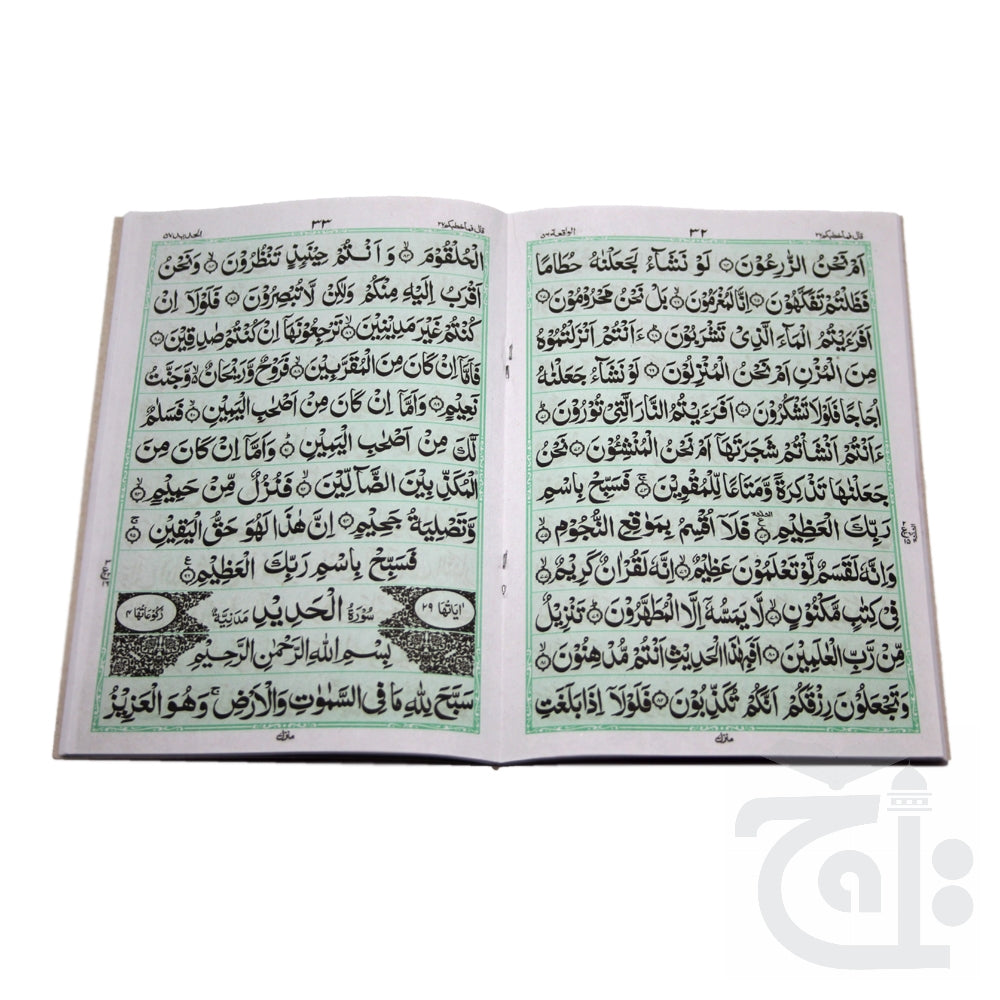 قال فما خطبكم ٢٧
٣٢
الواقعة ٥٦
اَمْ نَحْنُ الزّٰرِعُوْنَ ۝ لَوْ نَشَآءُ لَجَعَلْنٰهُ حُطَامًا
فَظَلْتُمْ تَفَكَّهُوْنَ ۝ اِنَّا لَمُغْرَمُوْنَ ۝ بَلْ نَحْنُ مَحْرُوْمُوْنَ ۝
اَفَرَءَيْتُمُ الْمَآءَ الَّذِىْ تَشْرَبُوْنَ ۝ ءَاَنْتُمْ اَنْزَلْتُمُوْهُ
مِنَ الْمُزْنِ اَمْ نَحْنُ الْمُنْزِلُوْنَ ۝ لَوْ نَشَآءُ جَعَلْنٰهُ
اُجَاجًا فَلَوْلَا تَشْكُرُوْنَ ۝ اَفَرَءَيْتُمُ النَّارَ الَّتِىْ تُوْرُوْنَ ۝
ءَاَنْتُمْ اَنْشَاْتُمْ شَجَرَتَهَآ اَمْ نَحْنُ الْمُنْشِـُٔوْنَ ۝ نَحْنُ
جَعَلْنٰهَا تَذْكِرَةً وَّمَتَاعًا لِّلْمُقْوِيْنَ ۝ فَسَبِّحْ بِاسْمِ
رَبِّكَ الْعَظِيْمِ ۝ فَلَآ اُقْسِمُ بِمَوٰقِعِ النُّجُوْمِ ۝
وَاِنَّهٗ لَقَسَمٌ لَّوْ تَعْلَمُوْنَ عَظِيْمٌ ۝ اِنَّهٗ لَقُرْاٰنٌ كَرِيْمٌ ۝
فِىْ كِتٰبٍ مَّكْنُوْنٍ ۝ لَّا يَمَسُّهٗٓ اِلَّا الْمُطَهَّرُوْنَ ۝ تَنْزِيْلٌ
مِّنْ رَّبِّ الْعٰلَمِيْنَ ۝ اَفَبِهٰذَا الْحَدِيْثِ اَنْتُمْ مُّدْهِنُوْنَ ۝
وَتَجْعَلُوْنَ رِزْقَكُمْ اَنَّكُمْ تُكَذِّبُوْنَ ۝ فَلَوْلَآ اِذَا بَلَغَتِ
منزل
قال فما خطبكم ٢٧
٣٣
الحديد ٥٧
الْحُلْقُوْمَ ۝ وَاَنْتُمْ حِيْنَئِذٍ تَنْظُرُوْنَ ۝ وَنَحْنُ
اَقْرَبُ اِلَيْهِ مِنْكُمْ وَلٰكِنْ لَّا تُبْصِرُوْنَ ۝ فَلَوْلَآ اِنْ
كُنْتُمْ غَيْرَ مَدِيْنِيْنَ ۝ تَرْجِعُوْنَهَآ اِنْ كُنْتُمْ صٰدِقِيْنَ ۝
فَاَمَّآ اِنْ كَانَ مِنَ الْمُقَرَّبِيْنَ ۝ فَرَوْحٌ وَّرَيْحَانٌ ۙ وَّجَنَّتُ
نَعِيْمٍ ۝ وَاَمَّآ اِنْ كَانَ مِنْ اَصْحٰبِ الْيَمِيْنِ ۝ فَسَلٰمٌ
لَّكَ مِنْ اَصْحٰبِ الْيَمِيْنِ ۝ وَاَمَّآ اِنْ كَانَ مِنَ
الْمُكَذِّبِيْنَ الضَّآلِّيْنَ ۝ فَنُزُلٌ مِّنْ حَمِيْمٍ ۝
وَّتَصْلِيَةُ جَحِيْمٍ ۝ اِنَّ هٰذَا لَهُوَ حَقُّ الْيَقِيْنِ ۝
فَسَبِّحْ بِاسْمِ رَبِّكَ الْعَظِيْمِ ۝
اٰيَاتُهَا ٢٩ سُوْرَةُ الْحَدِيْدِ مَدَنِيَّةٌ رُكُوْعَاتُهَا ٤
بِسْمِ اللّٰهِ الرَّحْمٰنِ الرَّحِيْمِ
سَبَّحَ لِلّٰهِ مَا فِى السَّمٰوٰتِ وَالْاَرْضِ ۚ وَهُوَ الْعَزِيْزُ
منزل